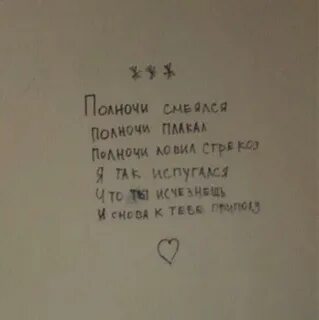 ***
Полночи смеялся
полночи плакал
полночи ловил стрекоз
Я так испугался
что ты исчезнешь
и снова к тебе приполз